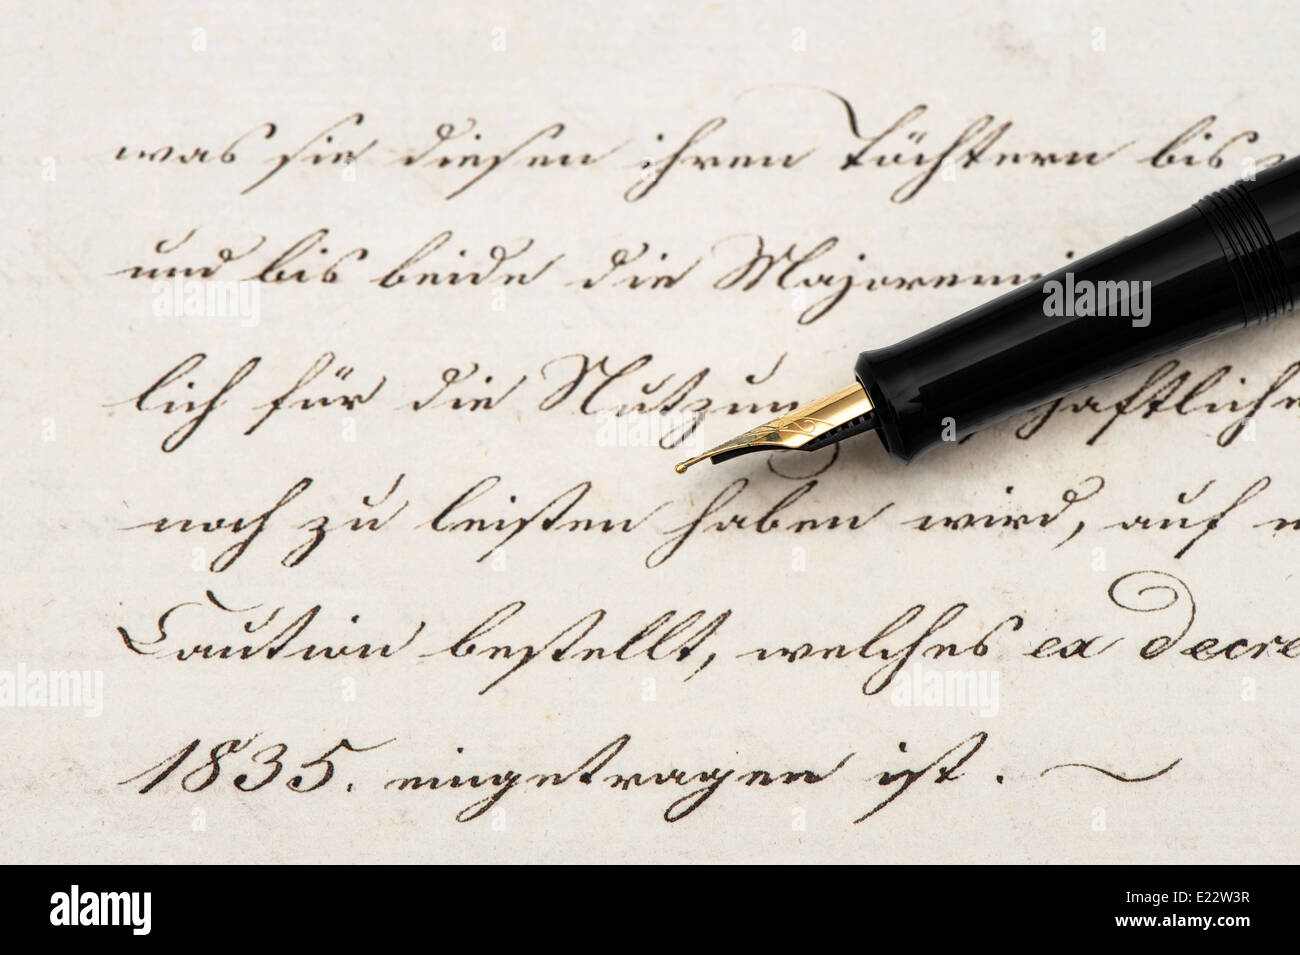 was sie diesen ihren Töchtern bis
und bis beide die Majorenni
lich für die Nutzun schaftliche
noch zu leisten haben wird, auf
Caution bestellt, welches ex Decre
1835. eingetragen ist.
alamy
Image ID: E22W3R
www.alamy.com